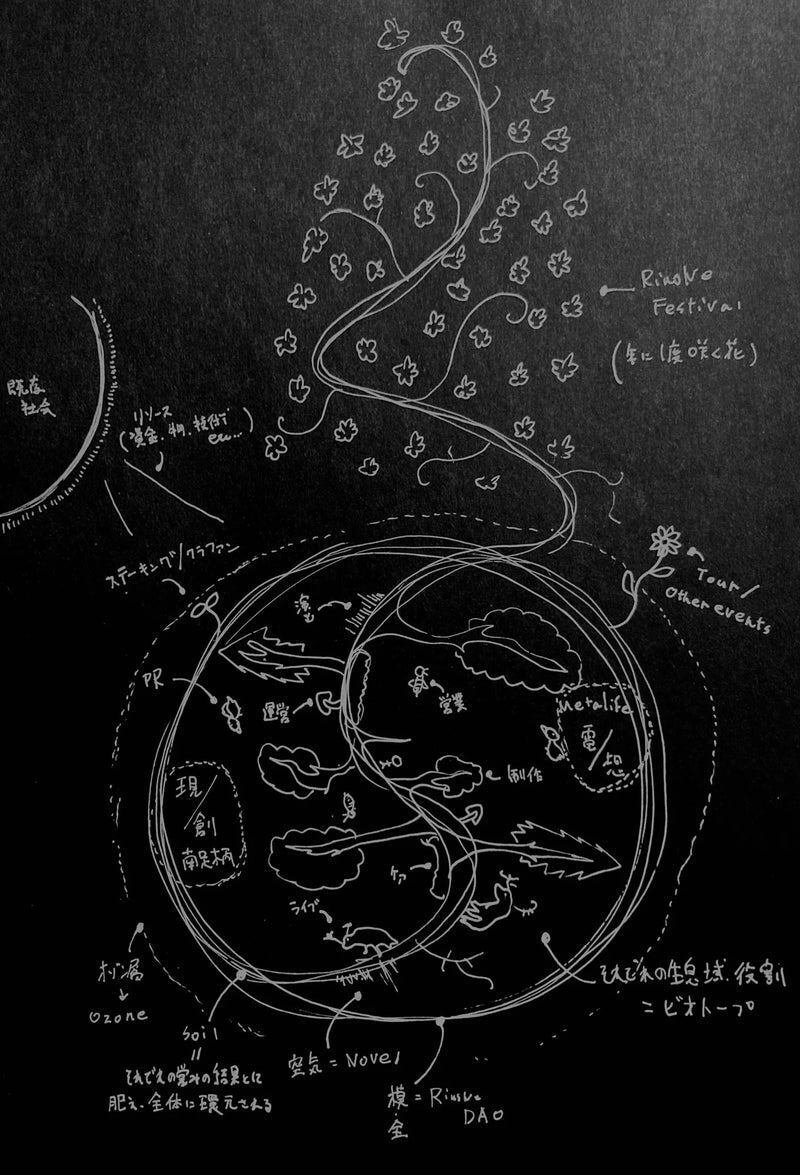 Rinolve
Festival
(年に1度咲く花)
既存
社会
リソース
(資金、物、技術
etc...)
ステーキング/クラファン
Tour/
Other events
演出
PR
運営
営業
Metalife
電/想
制作
現/創
南足柄
ケア
ライブ
オゾン層
↓
Ozone
soil
=
それぞれの営みの結果とに
肥え、全体に還元される
空気 = Novel
模 = Rinolve
全 DAO
それぞれの生息域、役割
= ビオトープ